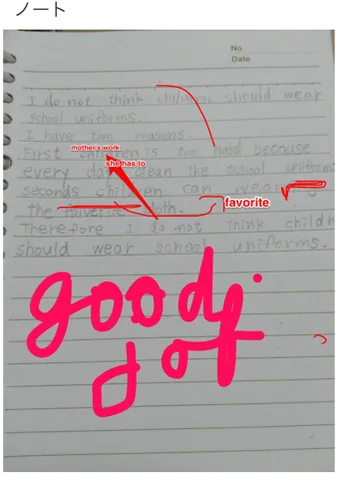 ノート
No.
Date
I do not think children should wear
school uniforms.
I have two reasons.
mother's work.
First children is too hard because
she has to
every day clean the school uniforms
seconds children can wearing
favorite
the cloth.
Therefore I do not think childr
should wear school uniforms.
good